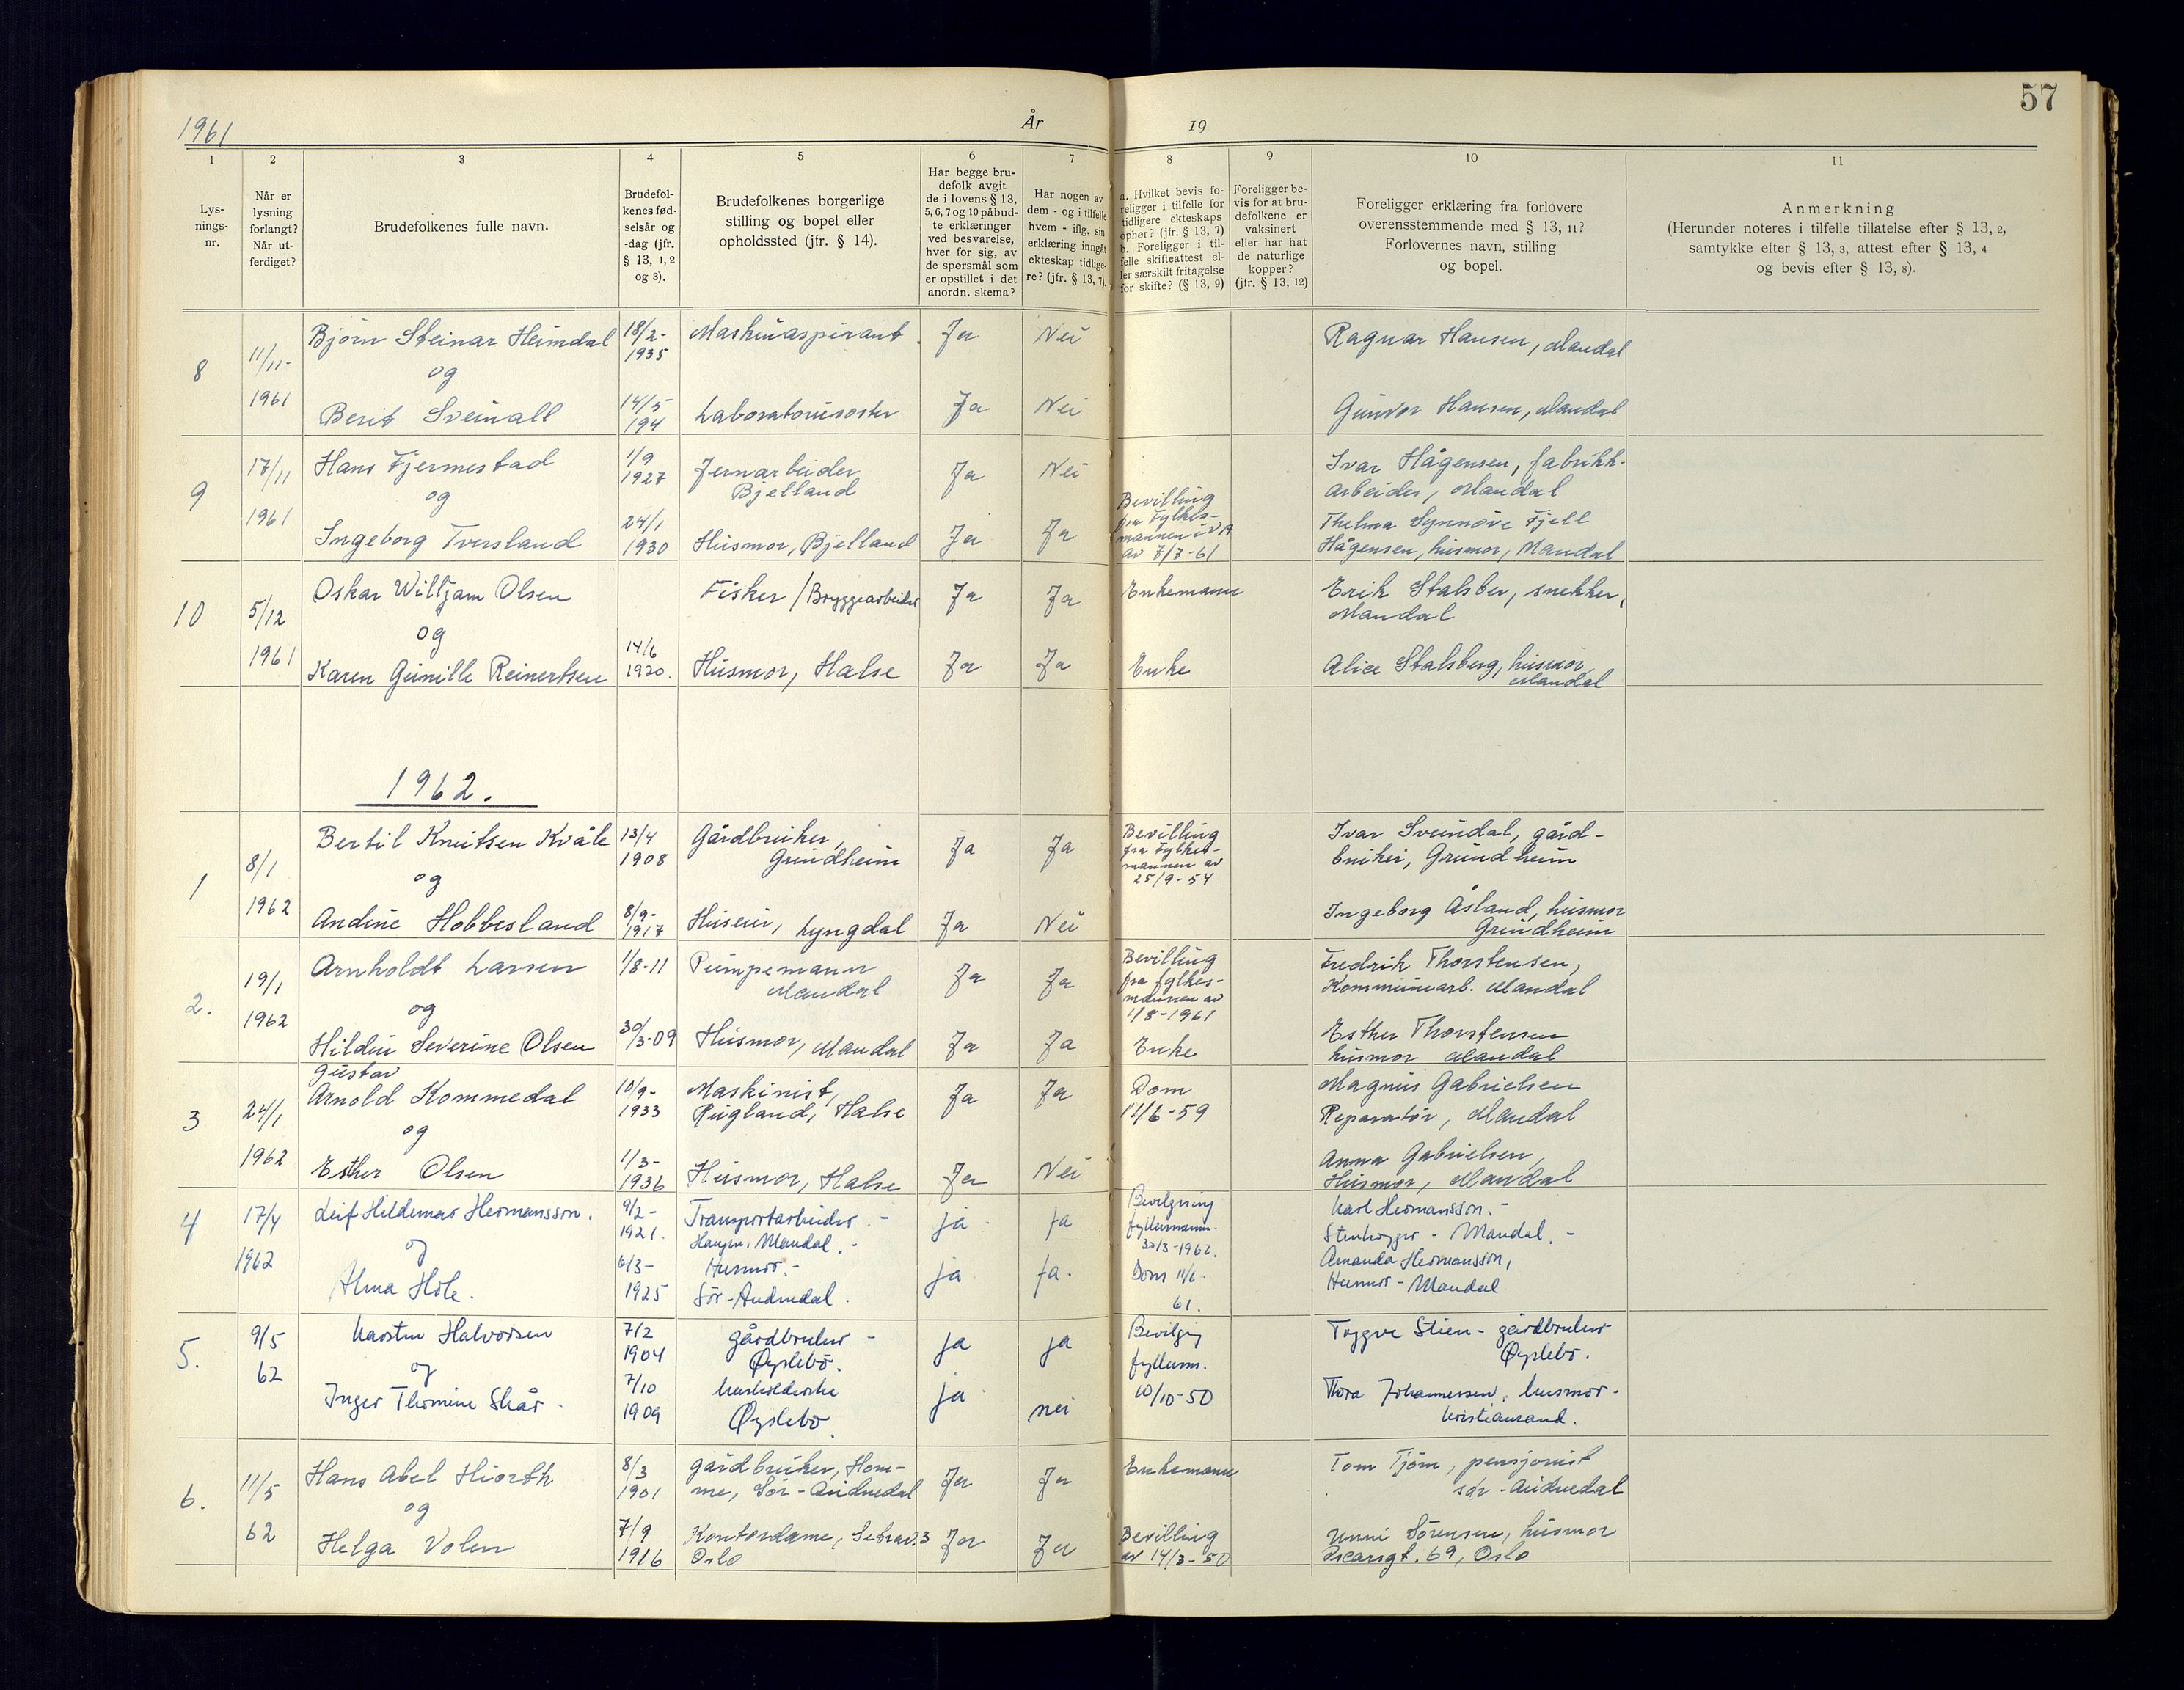 57
1961 År 19
1 2 3 4 5 6 7 8 9 10 11
Lys-
nings-
nr.
Når er
lysning
forlangt?
Når ut-
ferdiget?
Brudefolkenes fulle navn.
Brudefol-
kenes fød-
selsår og
-dag (jfr.
§ 13, 1, 2
og 3).
Brudefolkenes borgerlige
stilling og bopel eller
opholdssted (jfr. § 14).
Har begge bru-
defolk avgit
de i lovens § 13,
5, 6, 7 og 10 påbud-
te erklæringer
ved besvarelse,
hver for sig, av
de spørsmål som
er opstillet i det
anordn. skema?
Har nogen av
dem - og i tilfelle
hvem - iflg. sin
erklæring inngåt
ekteskap tidlige-
re? (jfr. § 13, 7).
a. Hvilket bevis fo-
religger i tilfelle for
tidligere ekteskaps
ophør? (jfr. § 13, 7)
b. Foreligger i til-
felle skifteattest el-
ler særskilt fritagelse
for skifte? (§ 13, 9)
Foreligger be-
vis for at bru-
defolkene er
vaksinert
eller har hat
de naturlige
kopper?
(jfr. § 13, 12)
Foreligger erklæring fra forlovere
overensstemmende med § 13, 11?
Forlovernes navn, stilling
og bopel.
Anmerkning
(Herunder noteres i tilfelle tillatelse efter § 13, 2,
samtykke efter § 13, 3, attest efter § 13, 4
og bevis efter § 13, 8).
8 11/11- 1961
Bjørn Steinar Heimdal 18/2- 1935 Maskinaspirant. Ja Nei Ragnar Hansen, Mandal
og
Berit Sveinall 14/5 194 Laboratoriesøster Ja Nei Gunvor Hansen, Mandal
9 17/11 1961
Hans Fjermestad 1/9 1927 Jernarbeider Bjelland Ja Nei Ivar Hågensen, fabrikk-
arbeider, Mandal
og
Ingeborg Tversland 24/1 1930 Husmor, Bjelland Ja Ja Bevilling
fra Fylkes-
mannen i VA
av 7/7-61
Thelma Synnøve Fjell
Hågensen, husmor, Mandal
10 5/12 1961
Oskar Willjam Olsen Fisker / Bryggearbeider Ja Ja Enkemann Erik Stalsber, snekker,
Mandal
og
Karen Gunille Reinertsen 14/6 1920. Husmor, Halse Ja Ja Enke Alice Stalsberg, husmor
Mandal
1962.
1 8/1 1962
Bertil Knutsen Kvåle 13/4 1908 Gårdbruker, Grindheim Ja Ja Bevilling
fra Fylkes-
mannen av
25/9-54
Ivar Sveindal, gård-
bruker, Grindheim
og
Andine Hobbesland 8/9- 1917 Huseier, Lyngdal Ja Nei Ingeborg Åsland, husmor
Grindheim
2. 19/1 1962
Arnholdt Larsen 1/8-11 Pumpemann Mandal Ja Ja Bevilling
fra fylkes-
mannen av
1/8-1961
Fredrik Thorstensen,
Kommunearb. Mandal
og
Hildur Severine Olsen 30/3-09 Husmor, Mandal Ja Ja Enke Esther Thorstensen
husmor Mandal
3 24/1 1962
Gustav
Arnold Kommedal 10/9- 1933 Maskinist, Rugland, Halse Ja Ja Dom
11/6-59
Magnus Gabrielsen
Reparatør, Mandal
og
Esther Olsen 1/3- 1936 Husmor, Halse Ja Nei Anna Gabrielsen,
Husmor, Mandal
4 17/4 1962
Leif Hildemar Hermansson. 9/2- 1921. Transportarbeider.- Mandal.- ja ja Bevilgning
fylkesmann.
30/3-1962.
Karl Hermansson.-
Stenhogger - Mandal.-
og
Alma Hole. 6/3- 1925 Husmor.- Sør-Audnedal. ja ja. Dom 11/6-
61.
Amanda Hermansson,
Husmor - Mandal
5. 9/5 62
Karsten Halvorsen 7/2 1904 gårdbruker - Øyslebø. ja ja Bevilgn
fylkesm.
10/10-50
Trygve Stien - gårdbruker
Øyslebø.
og
Inger Thomine Skår. 7/10 1909 husholderske Øyslebø ja nei Thora Johannessen, husmor.
Kristiansand.
6. 11/5 62
Hans Abel Hiorth 8/3 1901 gårdbruker, Hom-
me, Sør-Audnedal Ja Ja Enkemann Tom Tjöm, pensjonist
sør-Audnedal
og
Helga Volen 7/9 1916 Kontordame, Oslo Ja Ja Bevilling
av 14/3-50
Unni Sörensen, husmor
69, Oslo